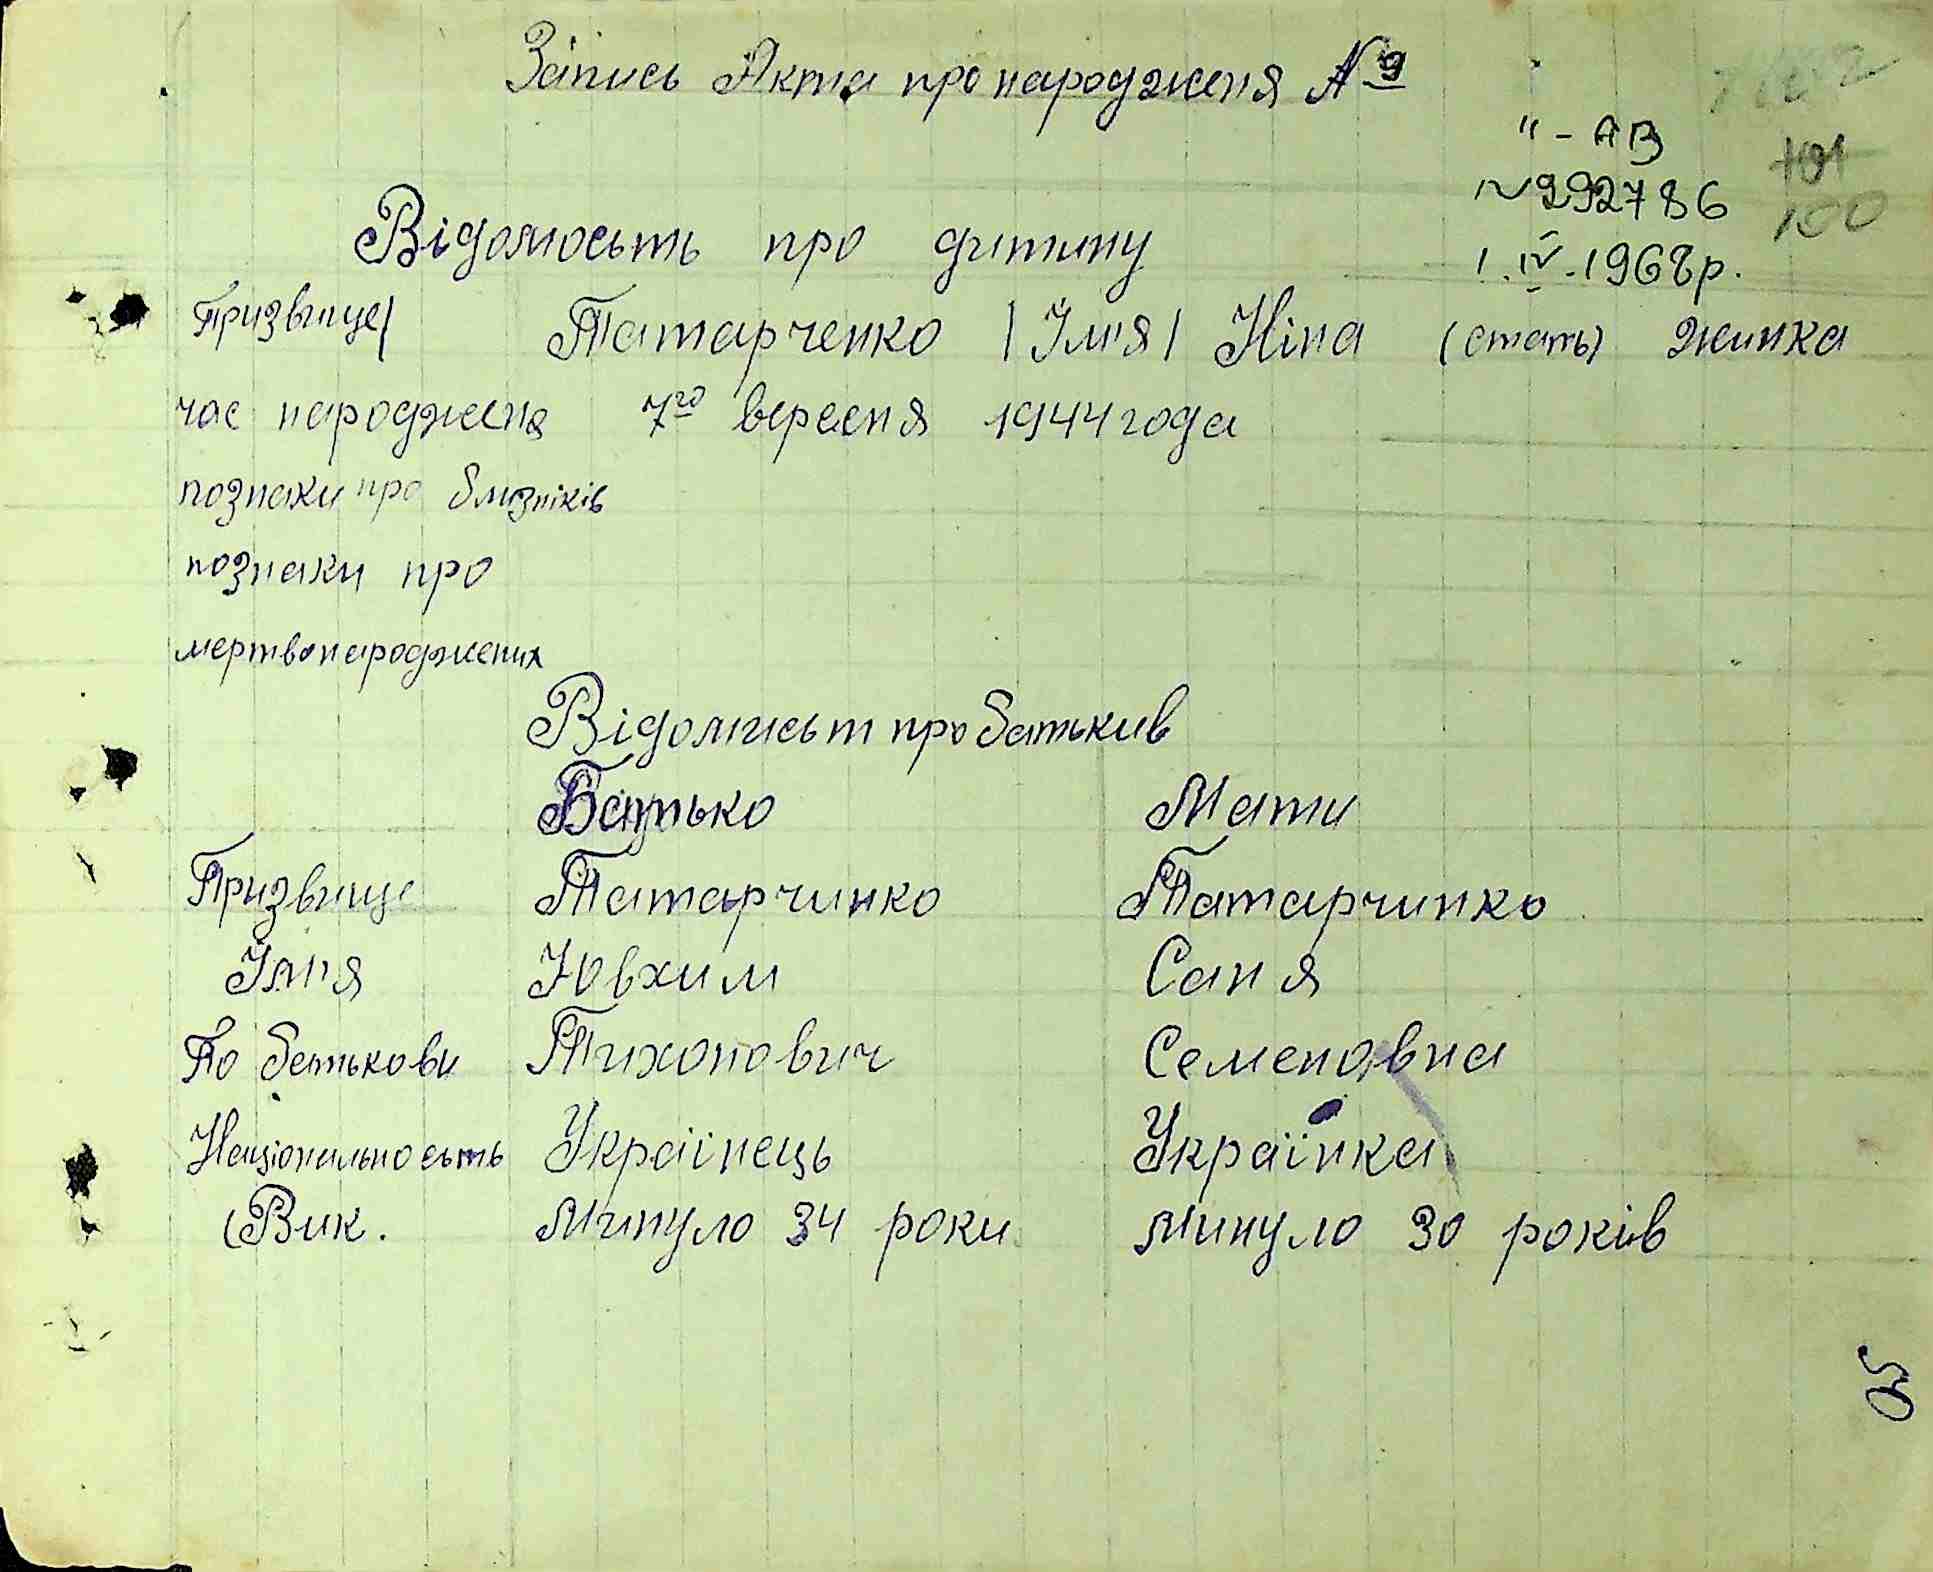 Запись Акта про народженя № 9
"-АВ
№292786 101
100
1.IV.1968р.
Відомосьть про дитину
Призвище/ Татарченко /Їм'я/ Ніна (стать) жинка
час народженя 7го вересня 1944 года
познаки про близніків
познаки про
мертвонароджених
Відомисьт про батькив
Батько Мати
Призвище Татарчинко Татарчинко
Їм'я Ювхим Саня
По батькови Тихонович Семеновна
Національносьть Українець Українка
(Вик. минуло 34 роки минуло 30 років